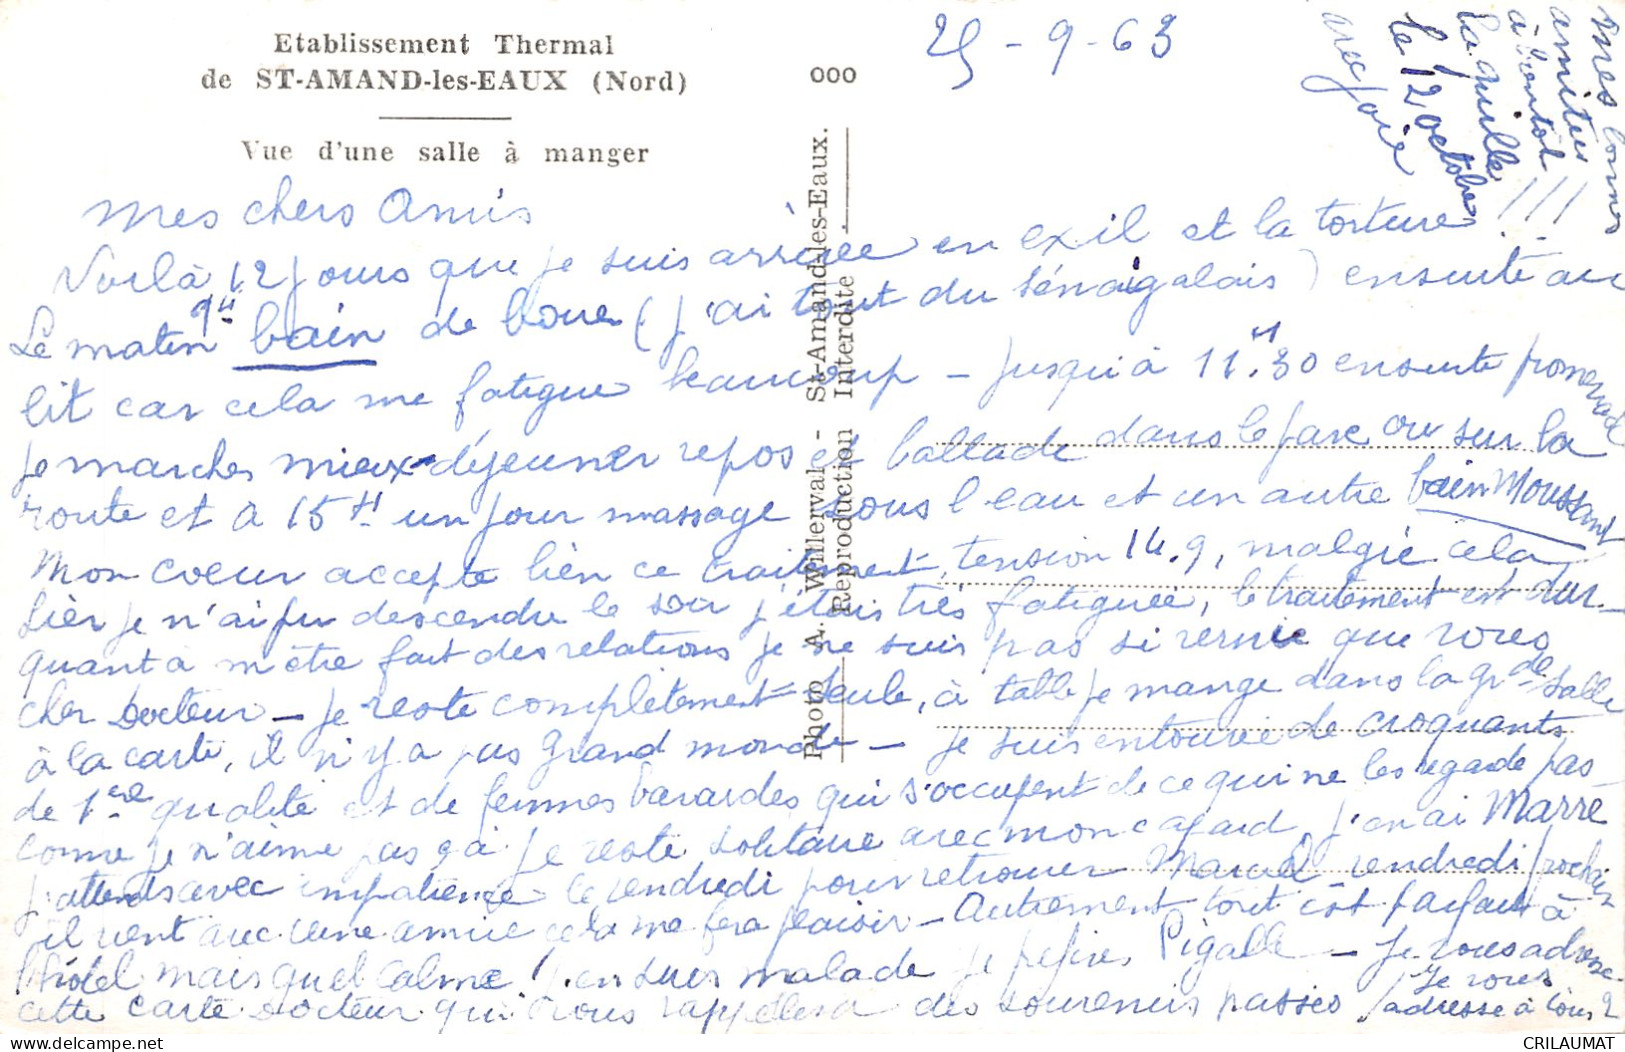 Etablissement Thermal
de ST-AMAND-les-EAUX (Nord)
Vue d'une salle à manger
000
Photo A. Willerval - St-Amand-les-Eaux.
Reproduction Interdite
25-9-63
Mes chers Amis
Voilà 12 jours que je suis arrivée en exil et la torture !
Le matin 9H bain de boue (j'ai tout du Sénégalais) ensuite au
lit car cela me fatigue beaucoup - jusqu'à 11H30 ensuite promenade
je marche mieux - déjeuner repos et ballade dans le parc ou sur la
route et à 15H un jour massage sous l'eau et un autre bain Moussant
Mon coeur accepte bien ce traitement, tension 14.9, malgré cela
hier je n'ai pu descendre le soir j'étais très fatiguée, le traitement est dur -
quant à m'être fait des relations je ne suis pas si vernie que vous
cher Docteur - je reste complètement seule, à table je mange dans la gde salle
à la carte, il n'y a pas grand monde - je suis entourée de croquants
de 1ère qualité et de femmes bavardes qui s'occupent de ce qui ne les regarde pas
comme je n'aime pas ça je reste solitaire avec mon cafard, j'en ai Marre
j'attends avec impatience le vendredi pour retrouver Marcel vendredi prochain
il vient avec une amie cela me fera plaisir - Autrement tout est parfait à
l'hôtel mais quel calme ! j'en suis malade je préfère Pigalle - Je vous adresse
cette carte Docteur qui vous rappellera des souvenirs passés
Je vous
adresse à tous 2
mes bonnes
amitiés
à bientôt !!!
la quille
le 12 octobre
avec joie
CRILAUMAT